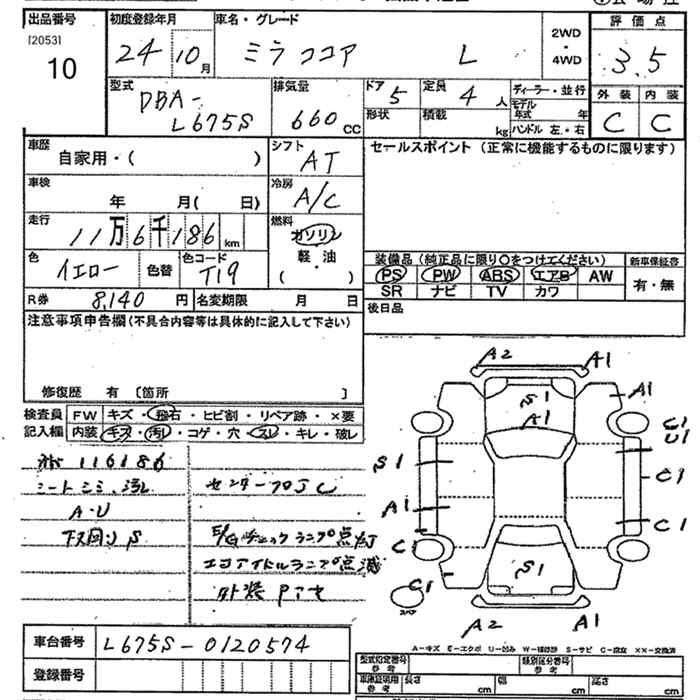 出品番号 初度登録年月 車名・グレード 評価点
[2053]
10 24 10月 ミラココア L 2WD・4WD 3.5
型式 DBA-L675S 排気量 660cc ドア 5 定員 4人 ディーラー・並行 外装 内装
形状 積載 kg モデル年式 年 ハンドル 左・右 C C
車歴 自家用・( ) シフト AT セールスポイント(正常に機能するものに限ります)
車検 年 月( 日) 冷房 A/C
走行 11万6千186km 燃料 ガソリン・軽油 ( )
色 イエロー 色替 色コード T19
装備品(純正品に限り○をつけてください) 新車保証書
PS PW ABS エアB AW 有・無
SR ナビ TV カワ
R券 8,140円 名変期限 月 日 後日品
注意事項申告欄(不具合内容等は具体的に記入して下さい)
修復歴 有 〔箇所 〕
検査員 FW キズ・飛石・ヒビ割・リペア跡・×要
記入欄 内装 キズ・汚レ・コゲ・穴・スレ・キレ・破レ
116186
シートシミ、汚レ センターフロJC
A・U
下回りS E/Gチェックランプ点灯
エコアイドルランプ点滅
外装Pアセ
A2 A1
S1 A1
A1
C1
U1
S1 C1
A1 C1
C S1
C1
スペア
A2 A1
A-キズ E-エクボ U-凹み W-補修跡 S-サビ C-腐食 ××-交換済
車台番号 L675S-0120574
登録番号
型式指定番号 参考 類別区分番号 参考
車庫証明用 参考 長さ cm 幅 cm 高さ cm